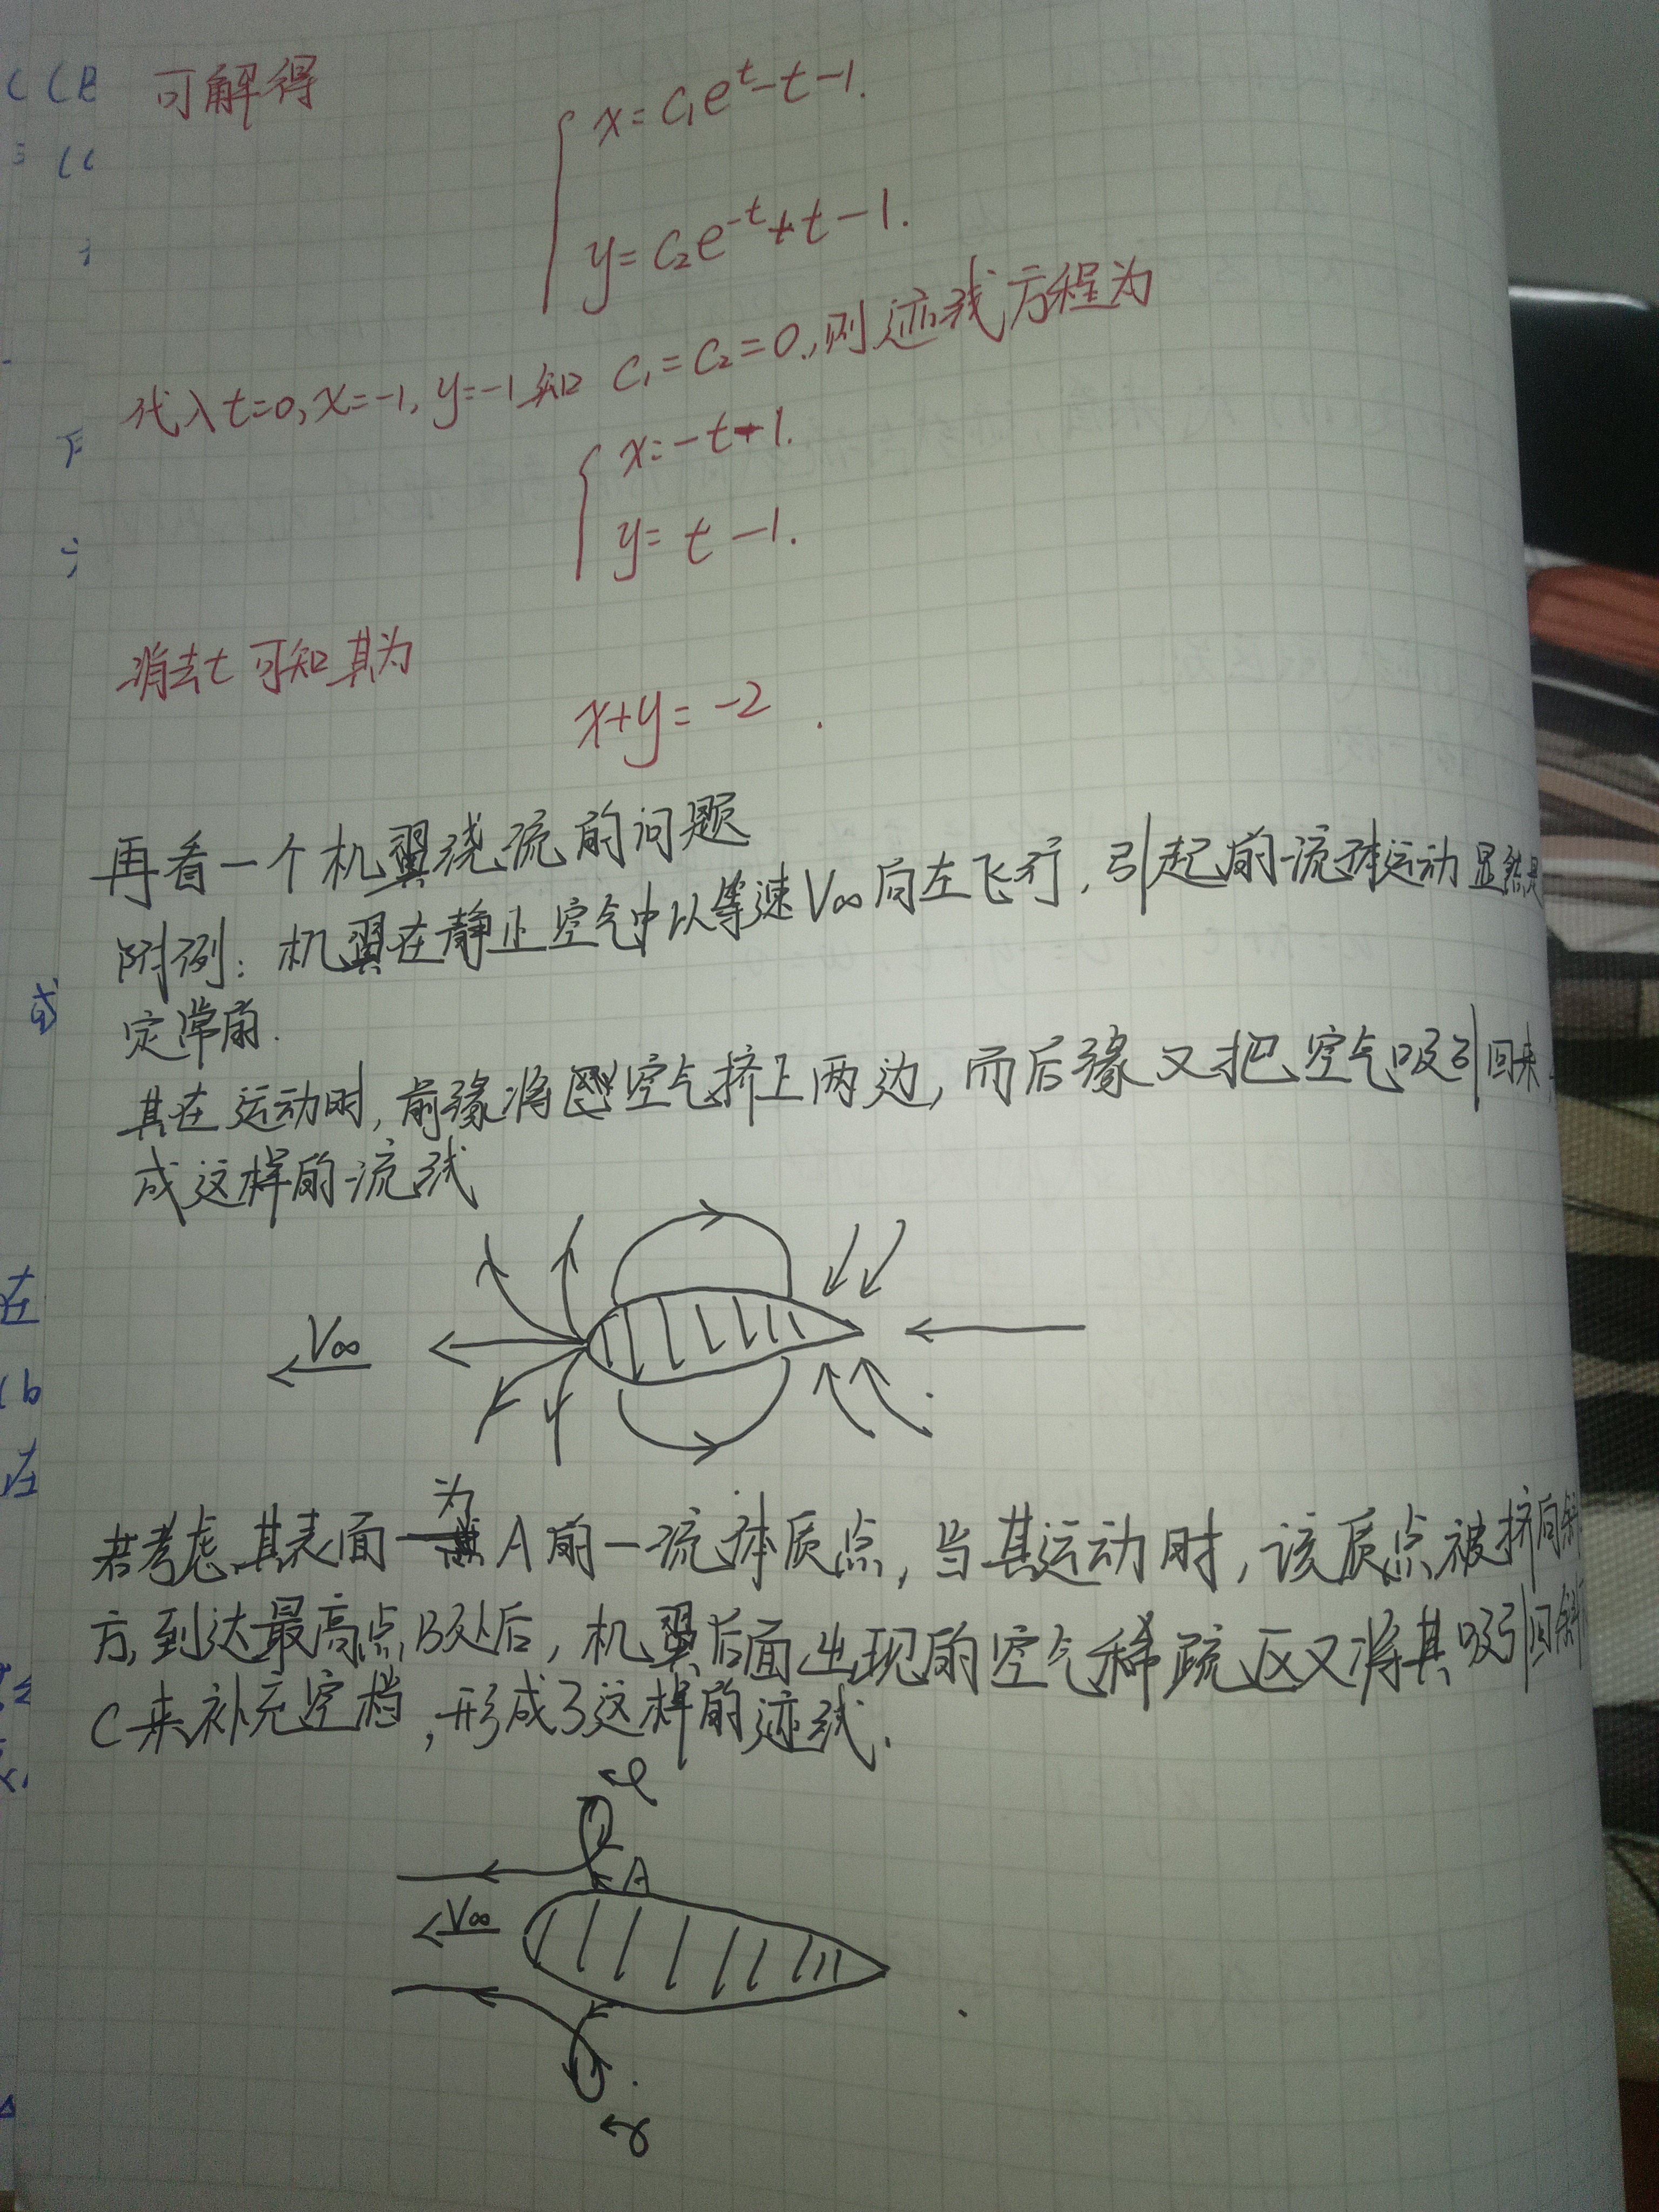 可解得
x=c₁eᵗ-t-1.
y=c₂e⁻ᵗ+t-1.
代入t=0,x=-1,y=-1知 c₁=c₂=0.,则迹线方程为
x=-t-1.
y=t-1.
消去t可知其为
x+y=-2.
再看一个机翼绕流的问题
附例:机翼在静止空气中以等速V∞向左飞行,引起的流体运动显然是
定常的.
其在运动时,前缘将空气挤上两边,而后缘又把空气吸引回来
成这样的流线
V∞
若考虑其表面为A的一流体质点,当其运动时,该质点被挤向斜
方,到达最高点B处后,机翼后面出现的空气稀疏区又将其吸引回斜
C来补充空档,形成了这样的迹线.
A
V∞